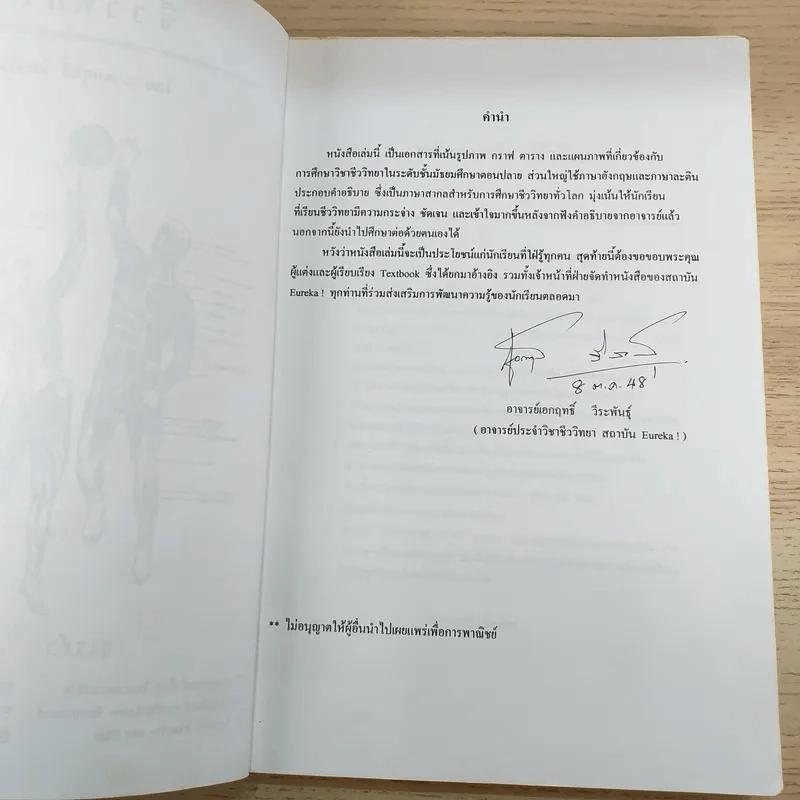 คำนำ
หนังสือเล่มนี้ เป็นเอกสารที่เน้นรูปภาพ กราฟ ตาราง และแผนภาพที่เกี่ยวข้องกับ
การศึกษาวิชาชีววิทยาในระดับชั้นมัธยมศึกษาตอนปลาย ส่วนใหญ่ใช้ภาษาอังกฤษและภาษาละติน
ประกอบคำอธิบาย ซึ่งเป็นภาษาสากลสำหรับการศึกษาชีววิทยาทั่วโลก มุ่งเน้นให้นักเรียน
ที่เรียนชีววิทยามีความกระจ่าง ชัดเจน และเข้าใจมากขึ้นหลังจากฟังคำอธิบายจากอาจารย์แล้ว
นอกจากนี้ยังนำไปศึกษาต่อด้วยตนเองได้
หวังว่าหนังสือเล่มนี้จะเป็นประโยชน์แก่นักเรียนที่ใฝ่รู้ทุกคน สุดท้ายนี้ต้องขอขอบพระคุณ
ผู้แต่งและผู้เรียบเรียง Textbook ซึ่งได้ยกมาอ้างอิง รวมทั้งเจ้าหน้าที่ฝ่ายจัดทำหนังสือของสถาบัน
Eureka ! ทุกท่านที่ร่วมส่งเสริมการพัฒนาความรู้ของนักเรียนตลอดมา
8 ต.ค. 48
อาจารย์เอกฤทธิ์ วีระพันธุ์
( อาจารย์ประจำวิชาชีววิทยา สถาบัน Eureka ! )
** ไม่อนุญาตให้ผู้อื่นนำไปเผยแพร่เพื่อการพาณิชย์